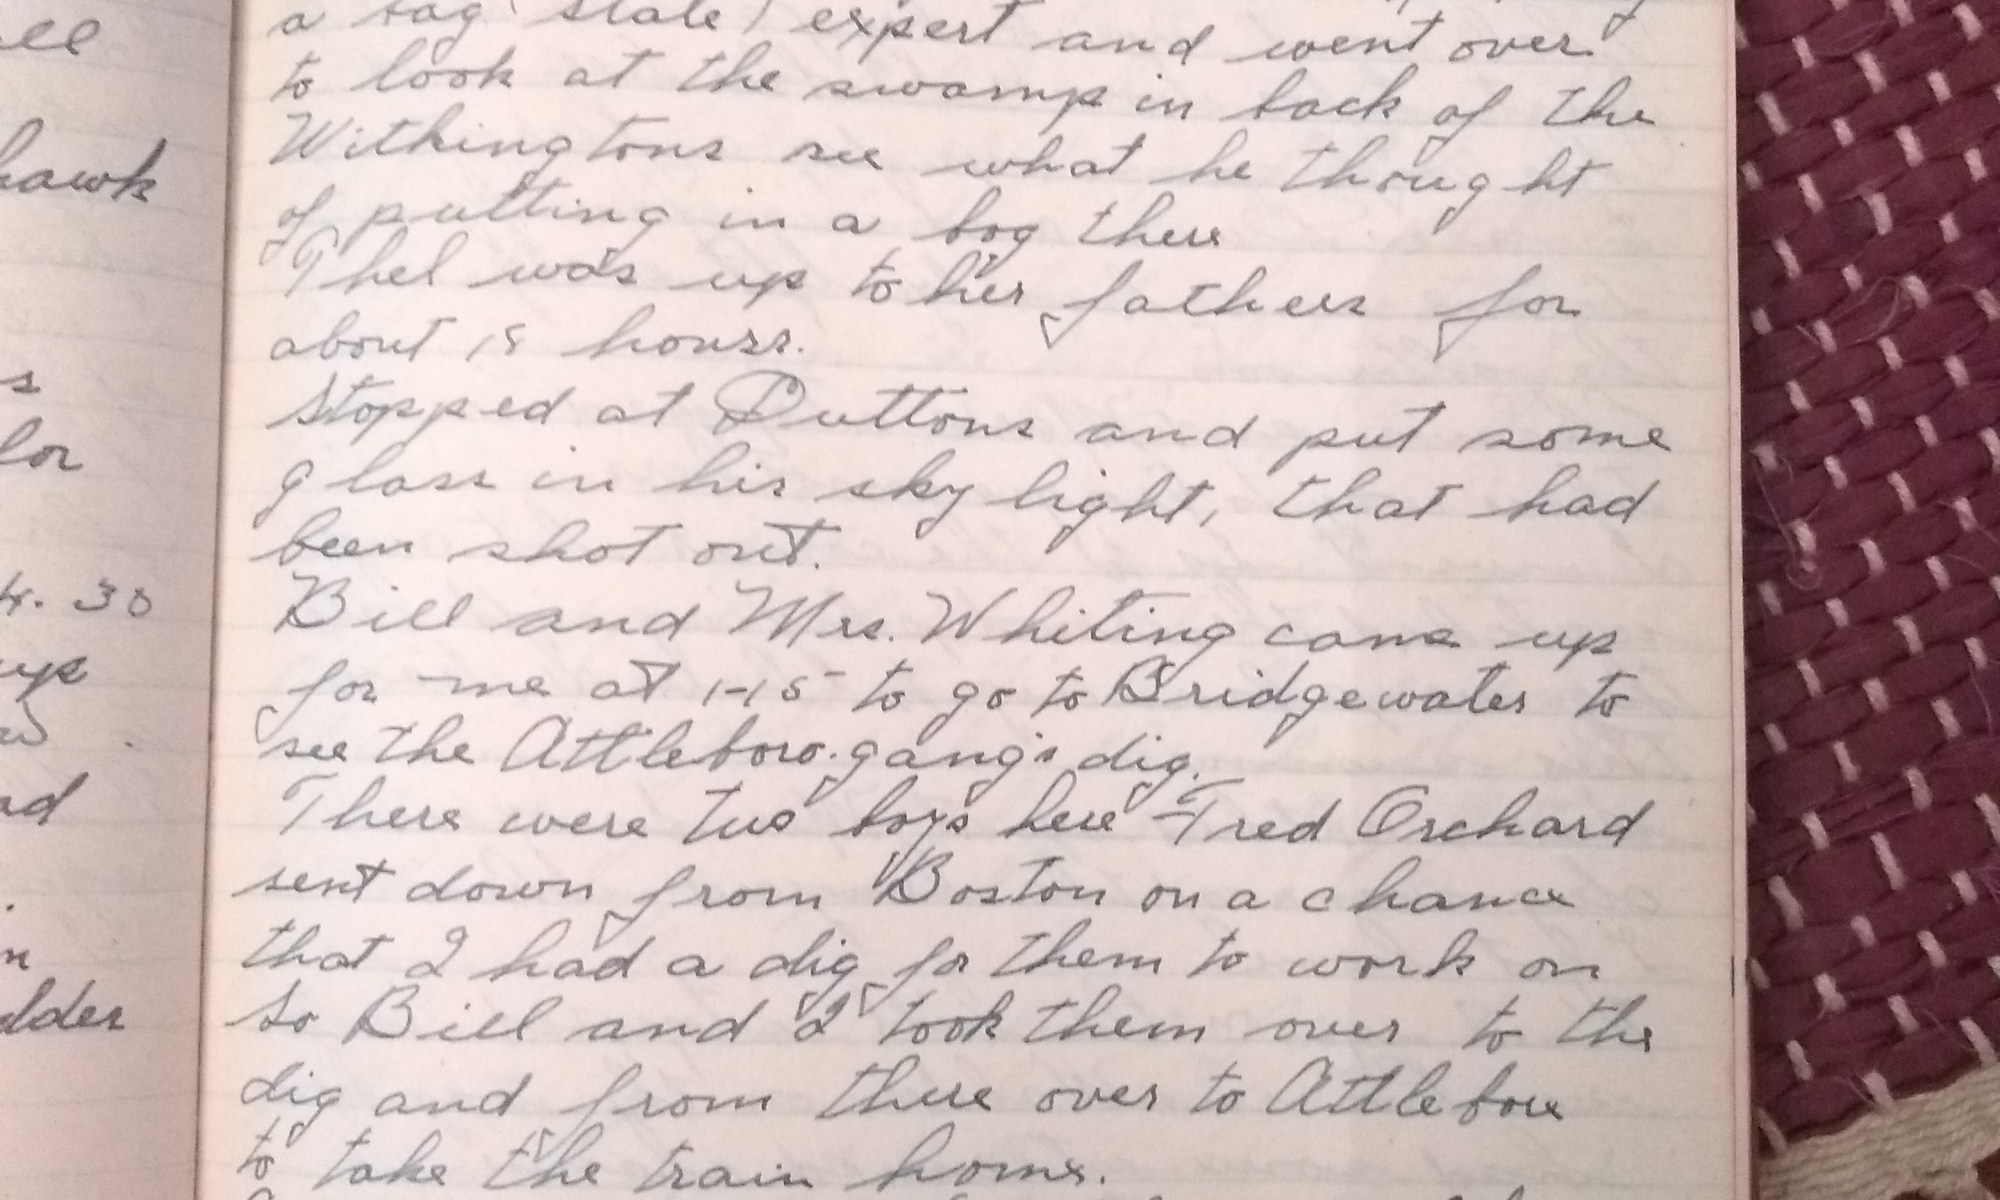 a bog (state) expert and went over
to look at the swamp in back of the
Withingtons see what he thought
of putting in a bog there
Thel was up to her fathers for
about 18 hours.
Stopped at Duttons and put some
glass in his sky light, that had
been shot out.
Bill and Mrs. Whiting came up
for me at 1-15 to go to Bridgewater to
see the Attleboro gang's dig.
There were two boys here Fred Orchard
sent down from Boston on a chance
that I had a dig for them to work on
so Bill and I took them over to the
dig and from there over to Attleboro
to take the train home.
ell
hawk
s
lor
4.30
up
w
ad
n
lder